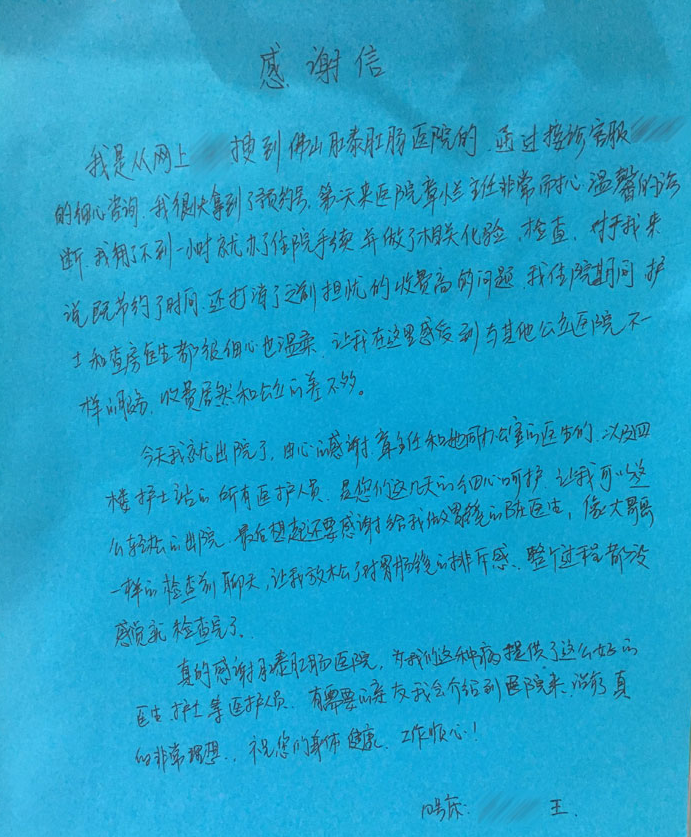 感谢信
我是从网上 搜到佛山肛泰肛肠医院的.通过接诊客服
的细心咨询.我很快拿到了预约号.第二天来医院章烂主任非常耐心温馨的诊
断.我用了不到一小时就办了住院手续并做了相关化验.检查.对于我来
说既节约了时间.还打消了之前担忧的收费高的问题.我住院期间护
士和查房医生都很细心也温柔.让我在这里感受到与其他公立医院不一
样的服务.收费居然和公立的差不多。
今天我就出院了.由心的感谢.章主任和她同办公室的医生的.以及四
楼护士站的所有医护人员.是您们这几天的细心呵护.让我可以这
么轻松的出院.最后想起还要感谢给我做胃镜的陈医生，像大哥哥
一样的检查前聊天,让我放松了对胃肠镜的排斥感、整个过程都没
感觉就检查完了、
真的感谢肛泰肛肠医院，为我们这种病提供了这么好的
医生.护士等医护人员.有需要的亲友我会介绍到医院来.治疗真
的非常理想..祝您们身体健康.工作顺心!
号床: 王.